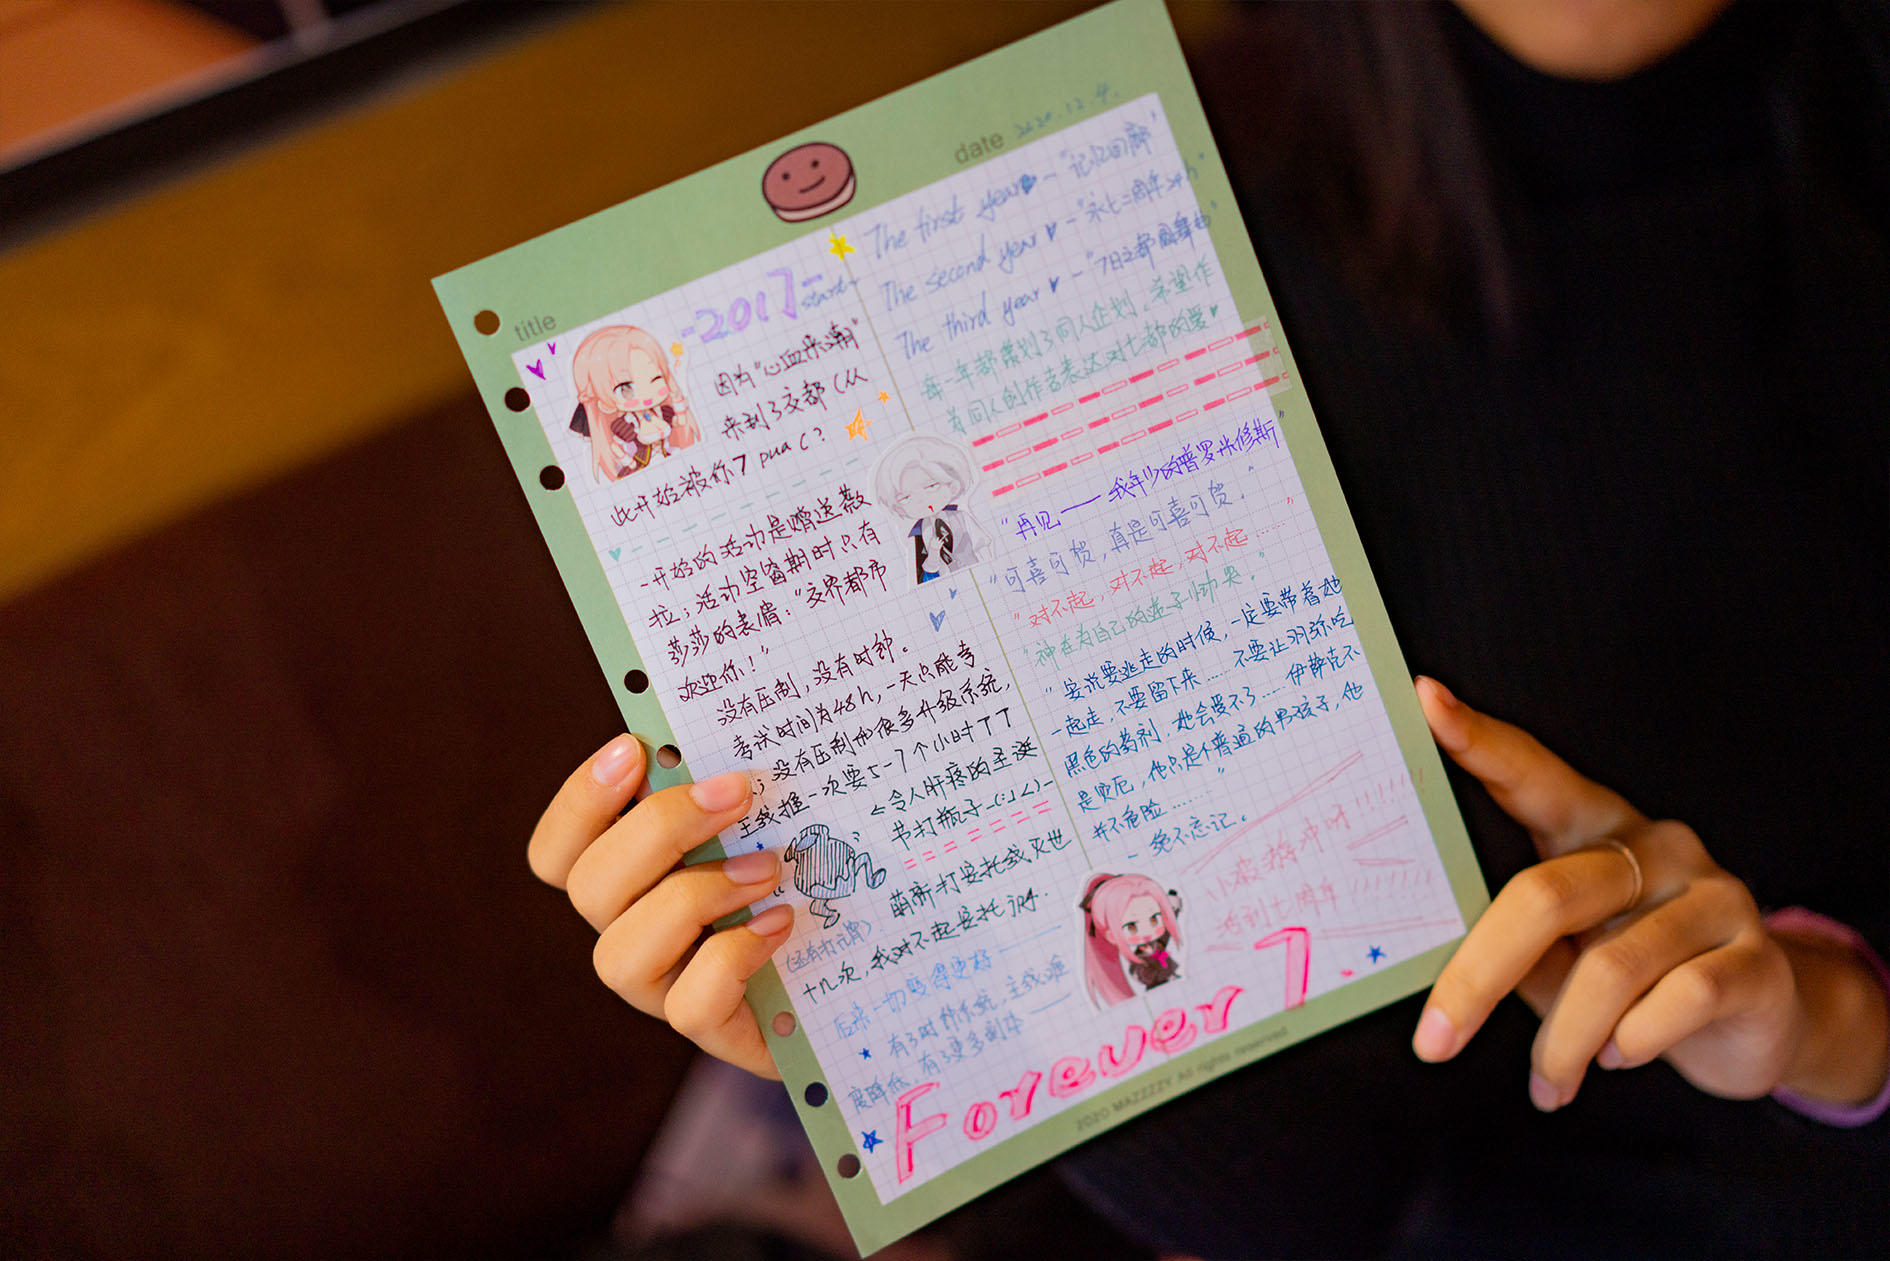 title
date 2020.12.4.
-2017-
start~
因为"心血来潮"
来到了交都(从
此开始被你7 pua(?
-开始的活动是赠送薇
拉;活动空窗期时只有
莎莎的表情:"交界都市
欢迎你!"
没有压制,没有时钟。
考试时间为48h,一天只能考
没有压制和很多升级系统,
主线推一次要5-7个小时TT
令人肝疼的圣诞
节打瓶子
(还有打元宵)
萌新打安托线灭世
十几次,我对不起安托诃
后来一切变得更好——
有了时钟系统,主线难
度降低,有了更多副本——
The first year - "记忆回廊"
The second year - "永七二周年24h"
The third year - "7日之都圆舞曲"
每一年都策划了同人企划,希望作
为同人创作者表达对七都的爱
"再见——我年少的普罗米修斯"
"可喜可贺,真是可喜可贺。"
"对不起,对不起,对不起……"
"神在为自己的造子恸哭。"
"安说要逃走的时候,一定要带着她
一起走,不要留下来……不要让羽弥吃
黑色的药剂,她会受不了……伊萨克不
是灾厄,他只是个普通的男孩子,他
并不危险……"
- 绝不忘记。
小破游冲呀!!!!!!
活到七周年!!!!!!
Forever 7.
2020 MAZZZZY All rights reserved